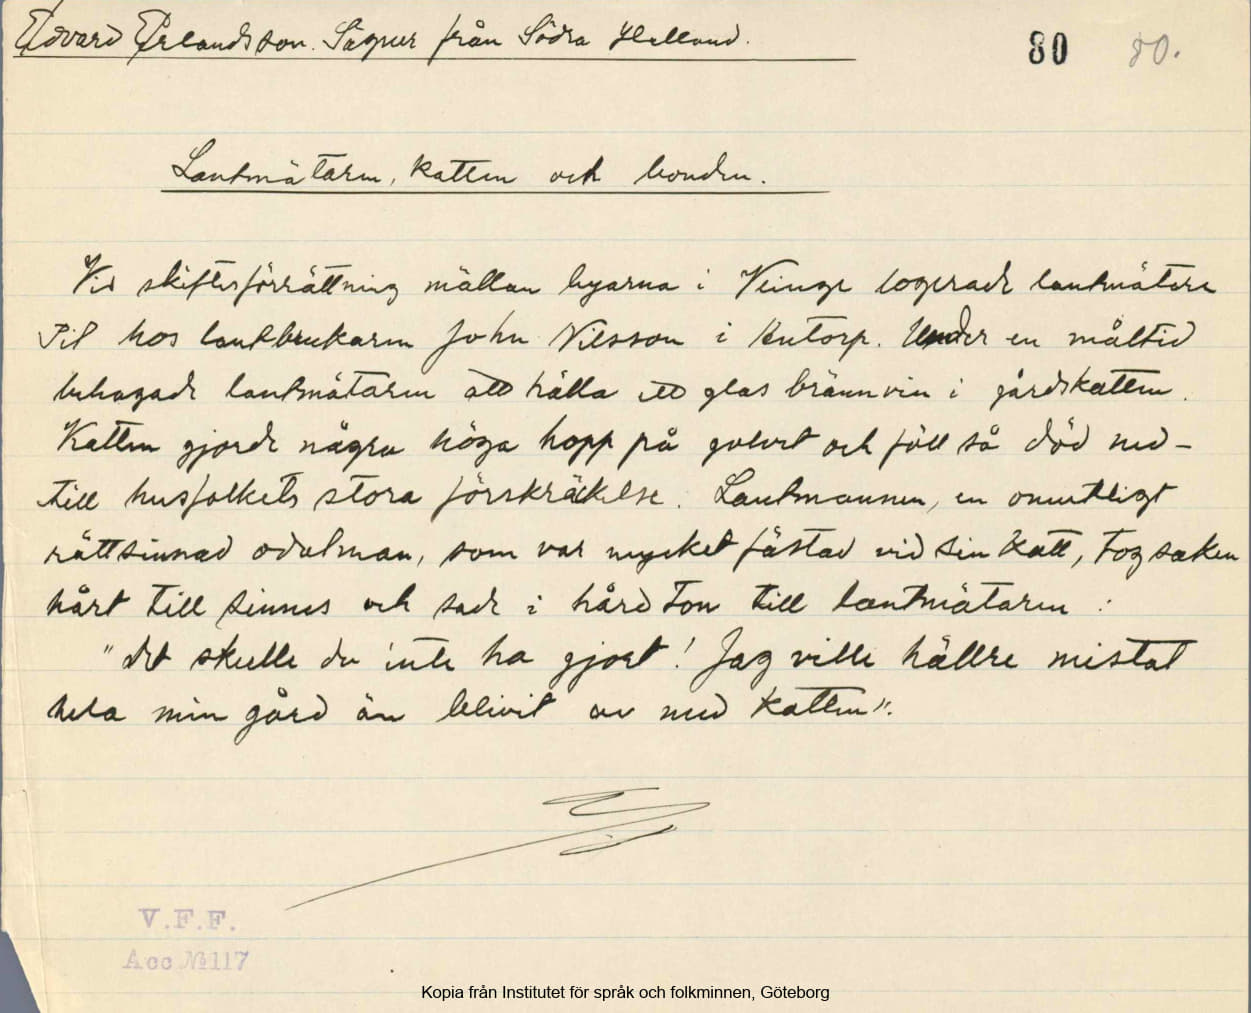 Edvard Erlandsson. Sägner från Södra Halland.
80 80.
Lantmätaren, katten och bonden.
Vid skiftesförrättning mällan byarna i Veinge logerade lantmätare
Pil hos lantbrukaren John Nilsson i Antorp. Under en måltid
behagade lantmätaren att hälla ett glas brännvin i gårdskatten.
Katten gjorde några höga hopp på golvet och föll så död ned –
till husfolkets stora förskräckelse. Lantmannen, en omutligt
rättsinnad odalman, som var mycket fästad vid sin katt, tog saken
hårt till sinnes och sade i hård ton till lantmätaren:
"Det skulle du inte ha gjort! Jag ville hällre mistat
hela min gård än blivit av med katten".
V.F.F.
Acc № 117
Kopia från Institutet för språk och folkminnen, Göteborg